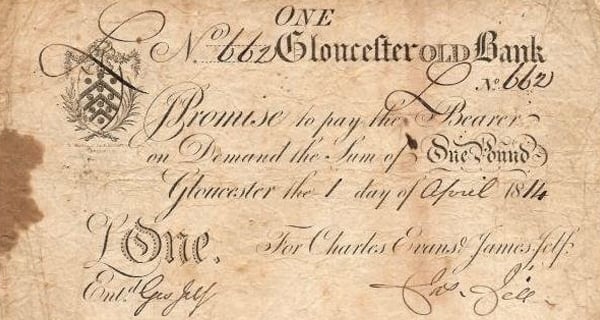 ONE
No. 662 Gloucester OLD Bank
No. 662
I Promise to pay the Bearer
on Demand the Sum of One Pound
Gloucester the 1 day of April 1814
£ One. For Charles Evans & James Jelf.
Entd. Geo Jelf Jas. Jelf